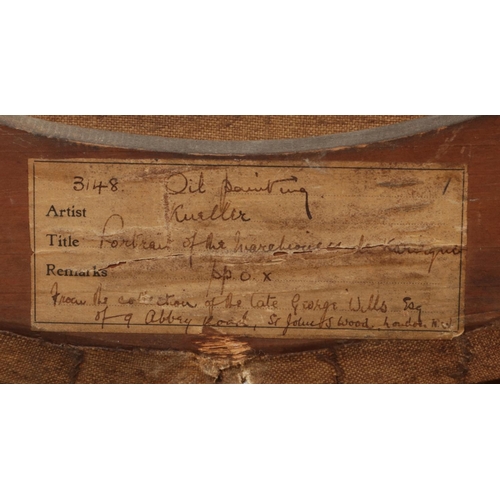 3148. Oil painting 1
Artist Kneller
Title Portrait of the Marchioness de
Remarks pp. o. x
From the collection of the late George Wills Esq
of 9 Abbey Road, St John's Wood, London. N.W.